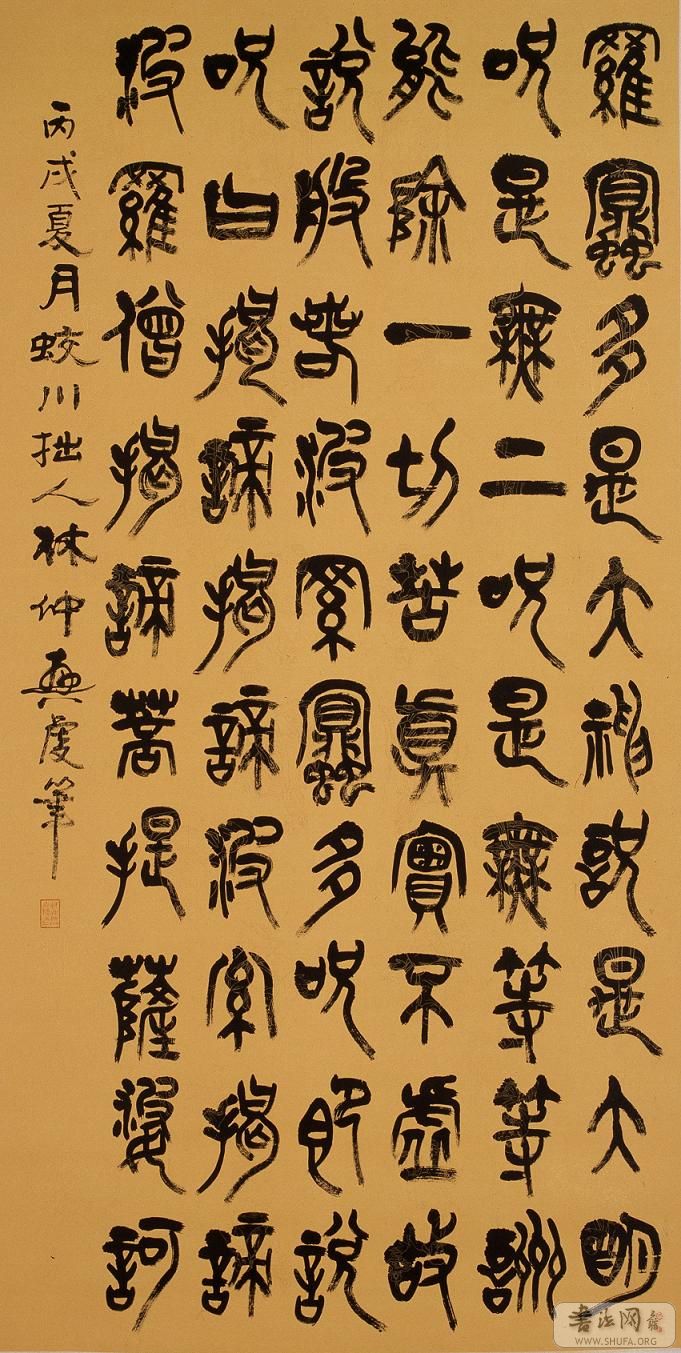 羅蜜多是大神詋是大明
呪是無二呪是無等等詶
能除一切苦真實不虛故
說般若波羅蜜多呪即說
呪曰揭諦揭諦波羅揭諦
波羅僧揭諦菩提薩婆訶
丙戌夏月蛟川拙人林仲興虔筆
书法网
WWW.SHUFA.ORG